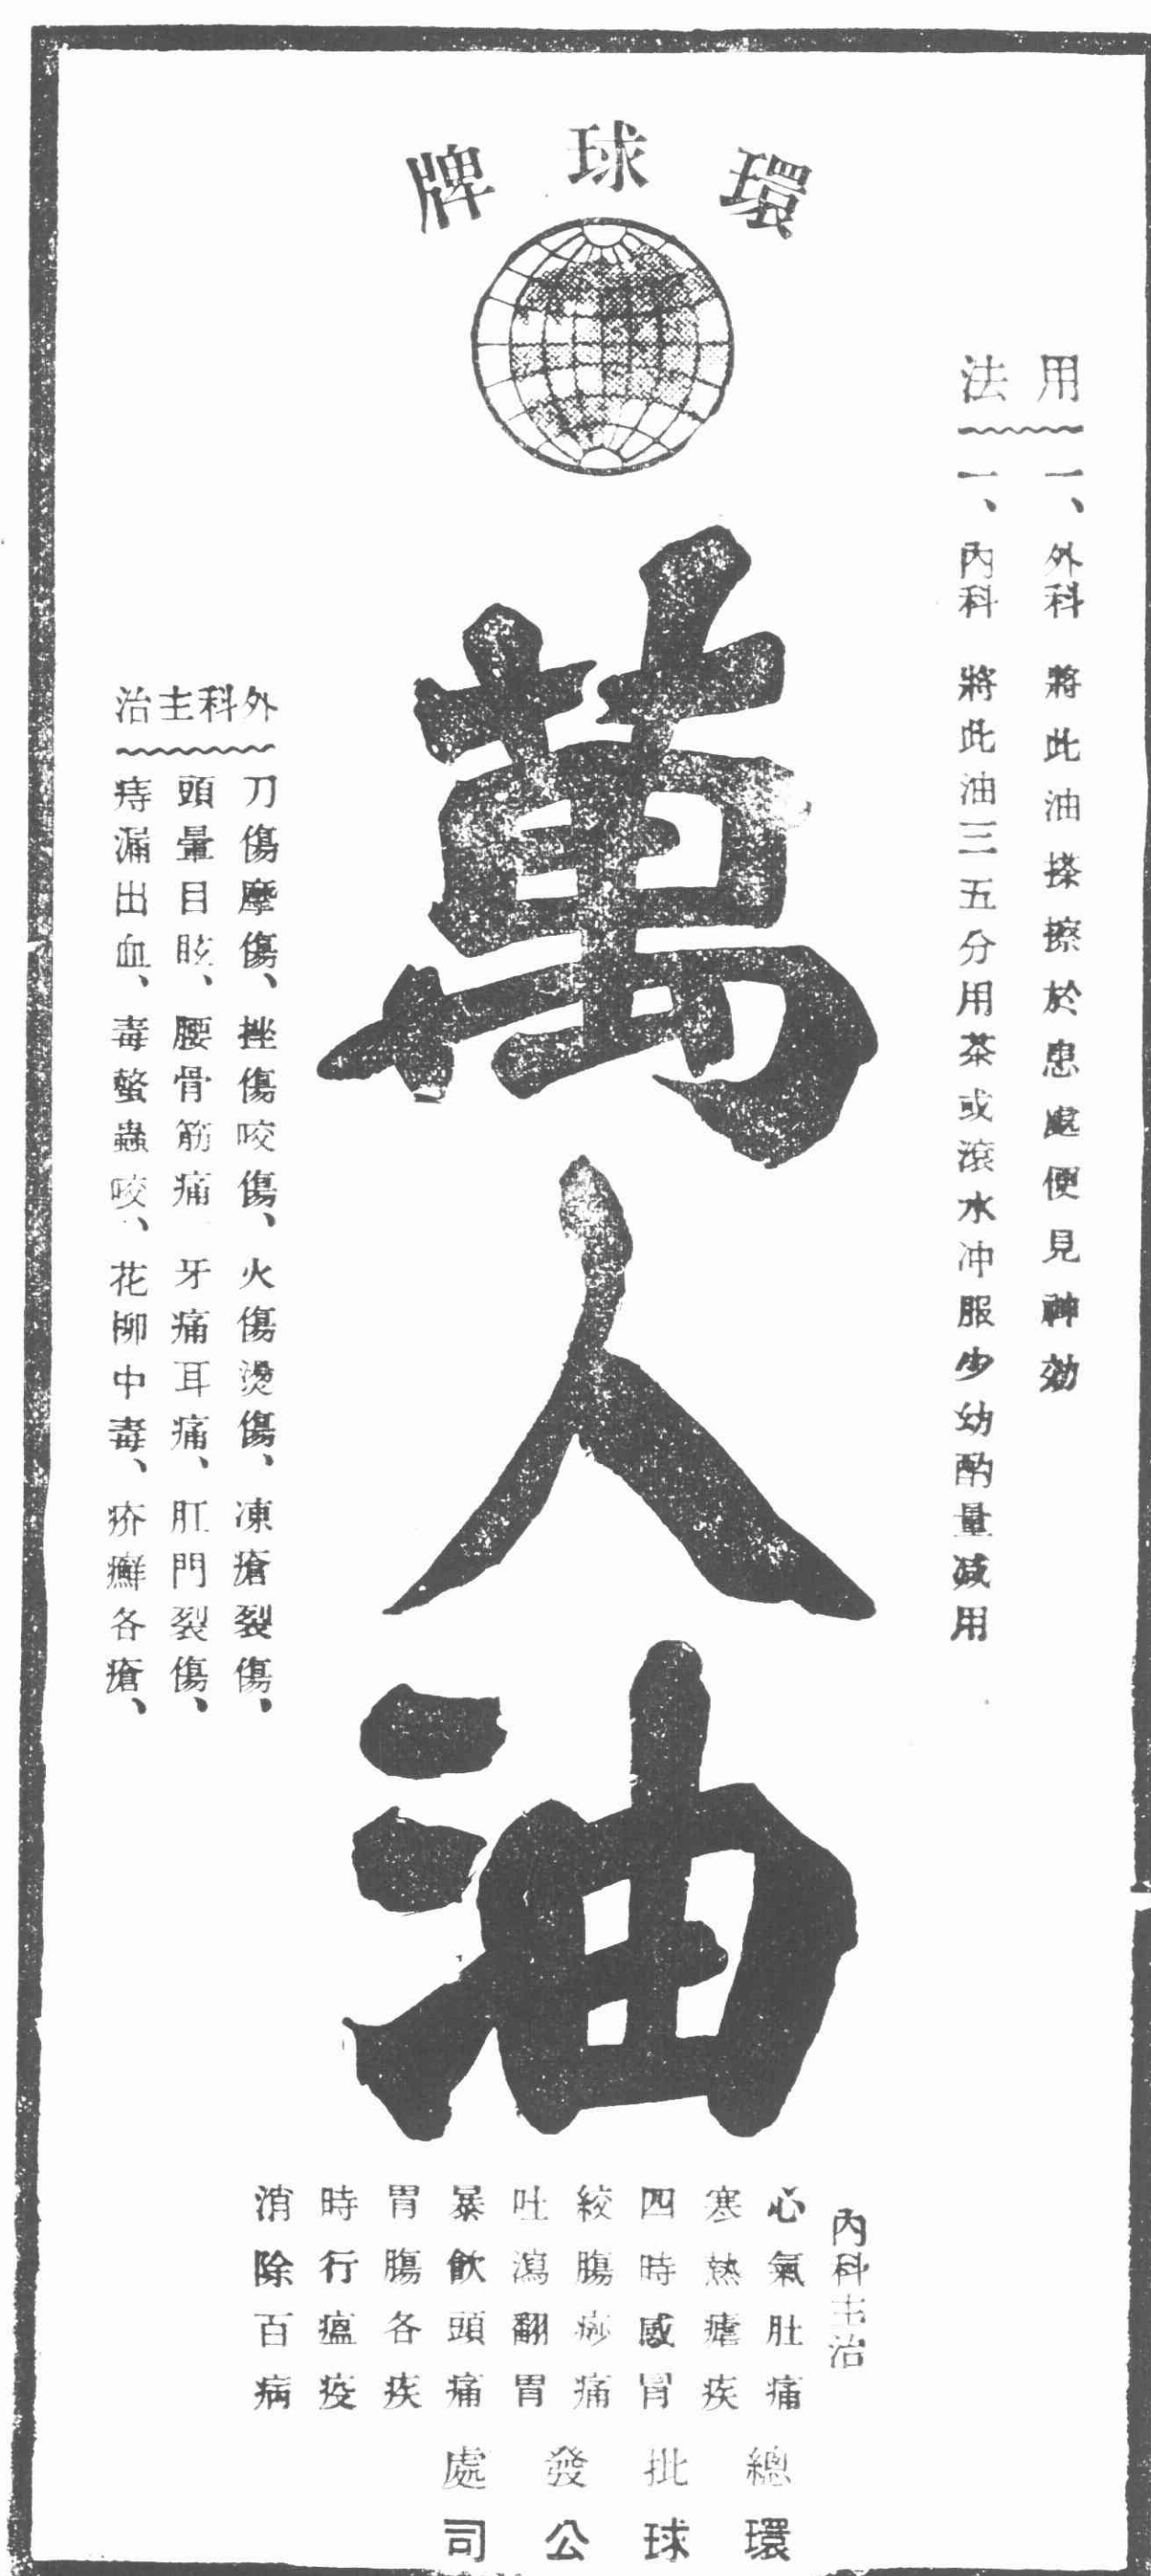 環球牌
用法
一、外科 將此油搽擦於患處便見神効
一、內科 將此油三五分用茶或滾水冲服少幼酌量減用
萬人油
外科主治
刀傷摩傷、挫傷咬傷、火傷燙傷、凍瘡裂傷、
頭暈目眩、腰骨筋痛 牙痛耳痛、肛門裂傷、
痔漏出血、毒螫蟲咬、花柳中毒、疥癬各瘡、
內科主治
心氣肚痛
寒熱瘧疾
四時感冒
絞腸痧痛
吐瀉翻胃
暴飲頭痛
胃腸各疾
時行瘟疫
消除百病
總批發處
環球公司